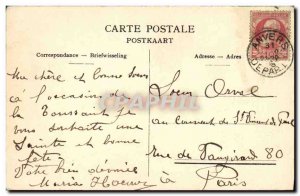 CARTE POSTALE
POSTKAART
Correspondance — Briefwisseling
Adresse — Adres
ANVERS
DEPART
Ma chère et bonne soeur
à l'occasion de
la Toussaint je
vous souhaite une
Sainte et bonne
fête
Votre bien dévouée
Maria
Soeur
au couvent de St
rue de Vaugirard 80
à
Paris